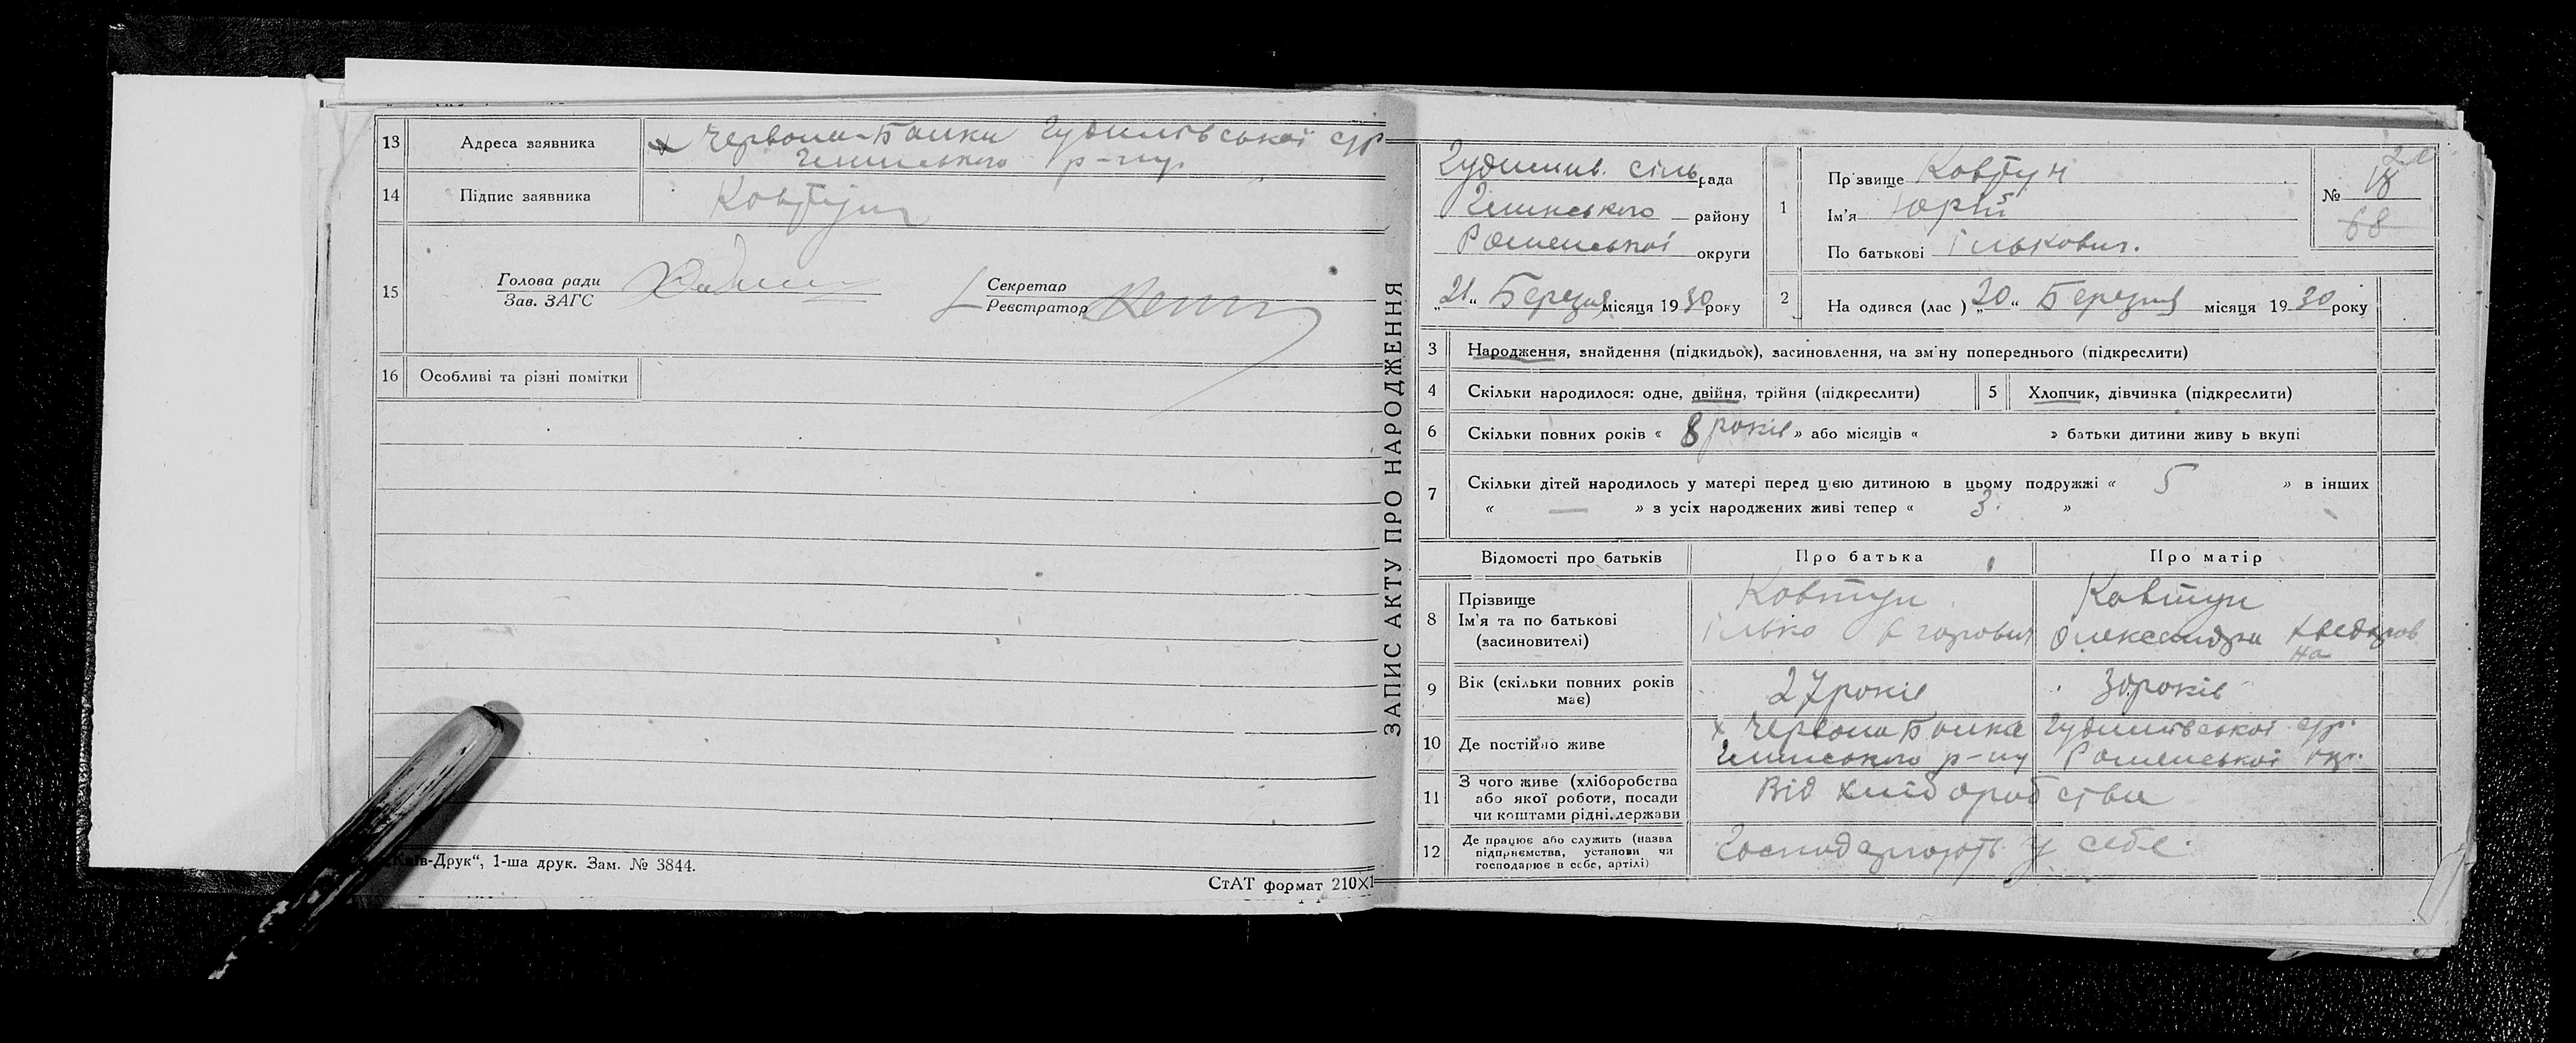 13 Адреса заявника х Червона-Балка Гудимівської с/р
Глинського р-ну
14 Підпис заявника Ковтун
15 Голова ради
Зав. ЗАГС
Секретар
Реєстратор
16 Особливі та різні помітки
Київ-Друк“, 1-ша друк. Зам. № 3844.
СтАТ формат 210Х1
ЗАПИС АКТУ ПРО НАРОДЖЕННЯ
Гудимів. сільрада
Глинського району
Роменської округи
„21“ Березня місяця 1930 року
1 Прізвище Ковтун
Ім'я Юрій
По батькові Ількович.
№ 18
68
2 На одився (лас ) „20“ Березня місяця 1930 року
3 Народження, знайдення (підкидьок), засиновлення, на зміну попереднього (підкреслити)
4 Скільки народилося: одне, двійня, трійня (підкреслити)
5 Хлопчик, дівчинка (підкреслити)
6 Скільки повних років « 8 років » або місяців « » батьки дитини живу ь вкупі
7 Скільки дітей народилось у матері перед цією дитиною в цьому подружжі « 5 » в інших
« — » з усіх народжених живі тепер « 3. »
Відомості про батьків Про батька Про матір
8 Прізвище Ковтун Ковтун
Ім'я та по батькові Ілько Єгорович Олександра Хведоров
на
(засиновителі)
9 Вік (скільки повних років має) 27 років 30 років
10 Де постійно живе х Червона Балка Гудимівської с/р.
Глинського р-ну Роменської окр.
11 З чого живе (хліборобства
або якої роботи, посади
чи коштами рідні, держави
Від хліборобства
12 Де працює або служить (назва
підприємства, установи чи
господарює в себе, артілі)
Господарюють у себе.